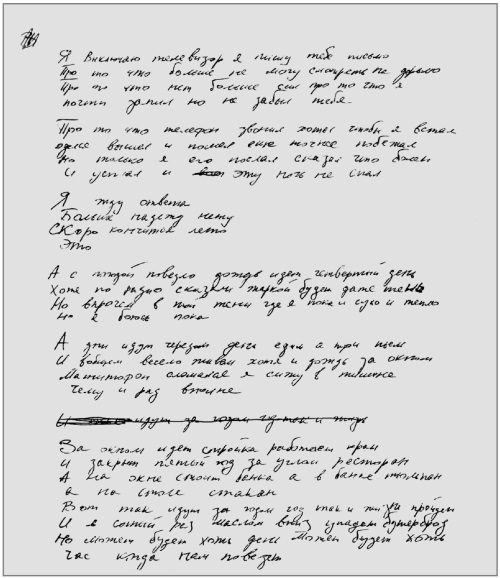 Я выключаю телевизор я пишу тебе письмо
Про то что больше не могу смотреть на дерьмо
Про то что нет больше сил про то что я
почти запил но не забыл тебя.
Про то что телефон звонил хотел чтобы я встал
оделся вышел и пошел еще точнее побежал
Но только я его послал сказал что болен
И устал и эту ночь не спал
Я жду ответа
Больше надежд нету
СКоро кончится лето
Это
А с погодой повезло дождь идет четвертый день
Хотя по радио сказали жаркой будет даже тень
Но впрочем в той тени где я пока и сухо и тепло
Но я боюсь пока
А дни идут чередом день едим а три пьем
И вобщем весело живем хотя и дождь за окном
Магнитофон сломался я сижу в тишине
Чему и рад вполне
идут за годом год так и
За окном идет стройка работает кран
И закрыт пятый год за углом ресторан
А на окне стоит банка а в банке тюльпан
а на столе стакан
Вот так идут за годом год так и жизнь пройдет
И в сотый раз маслом вниз упадет бутерброд
Но может будет хоть день может будет хоть
час когда нам повезет